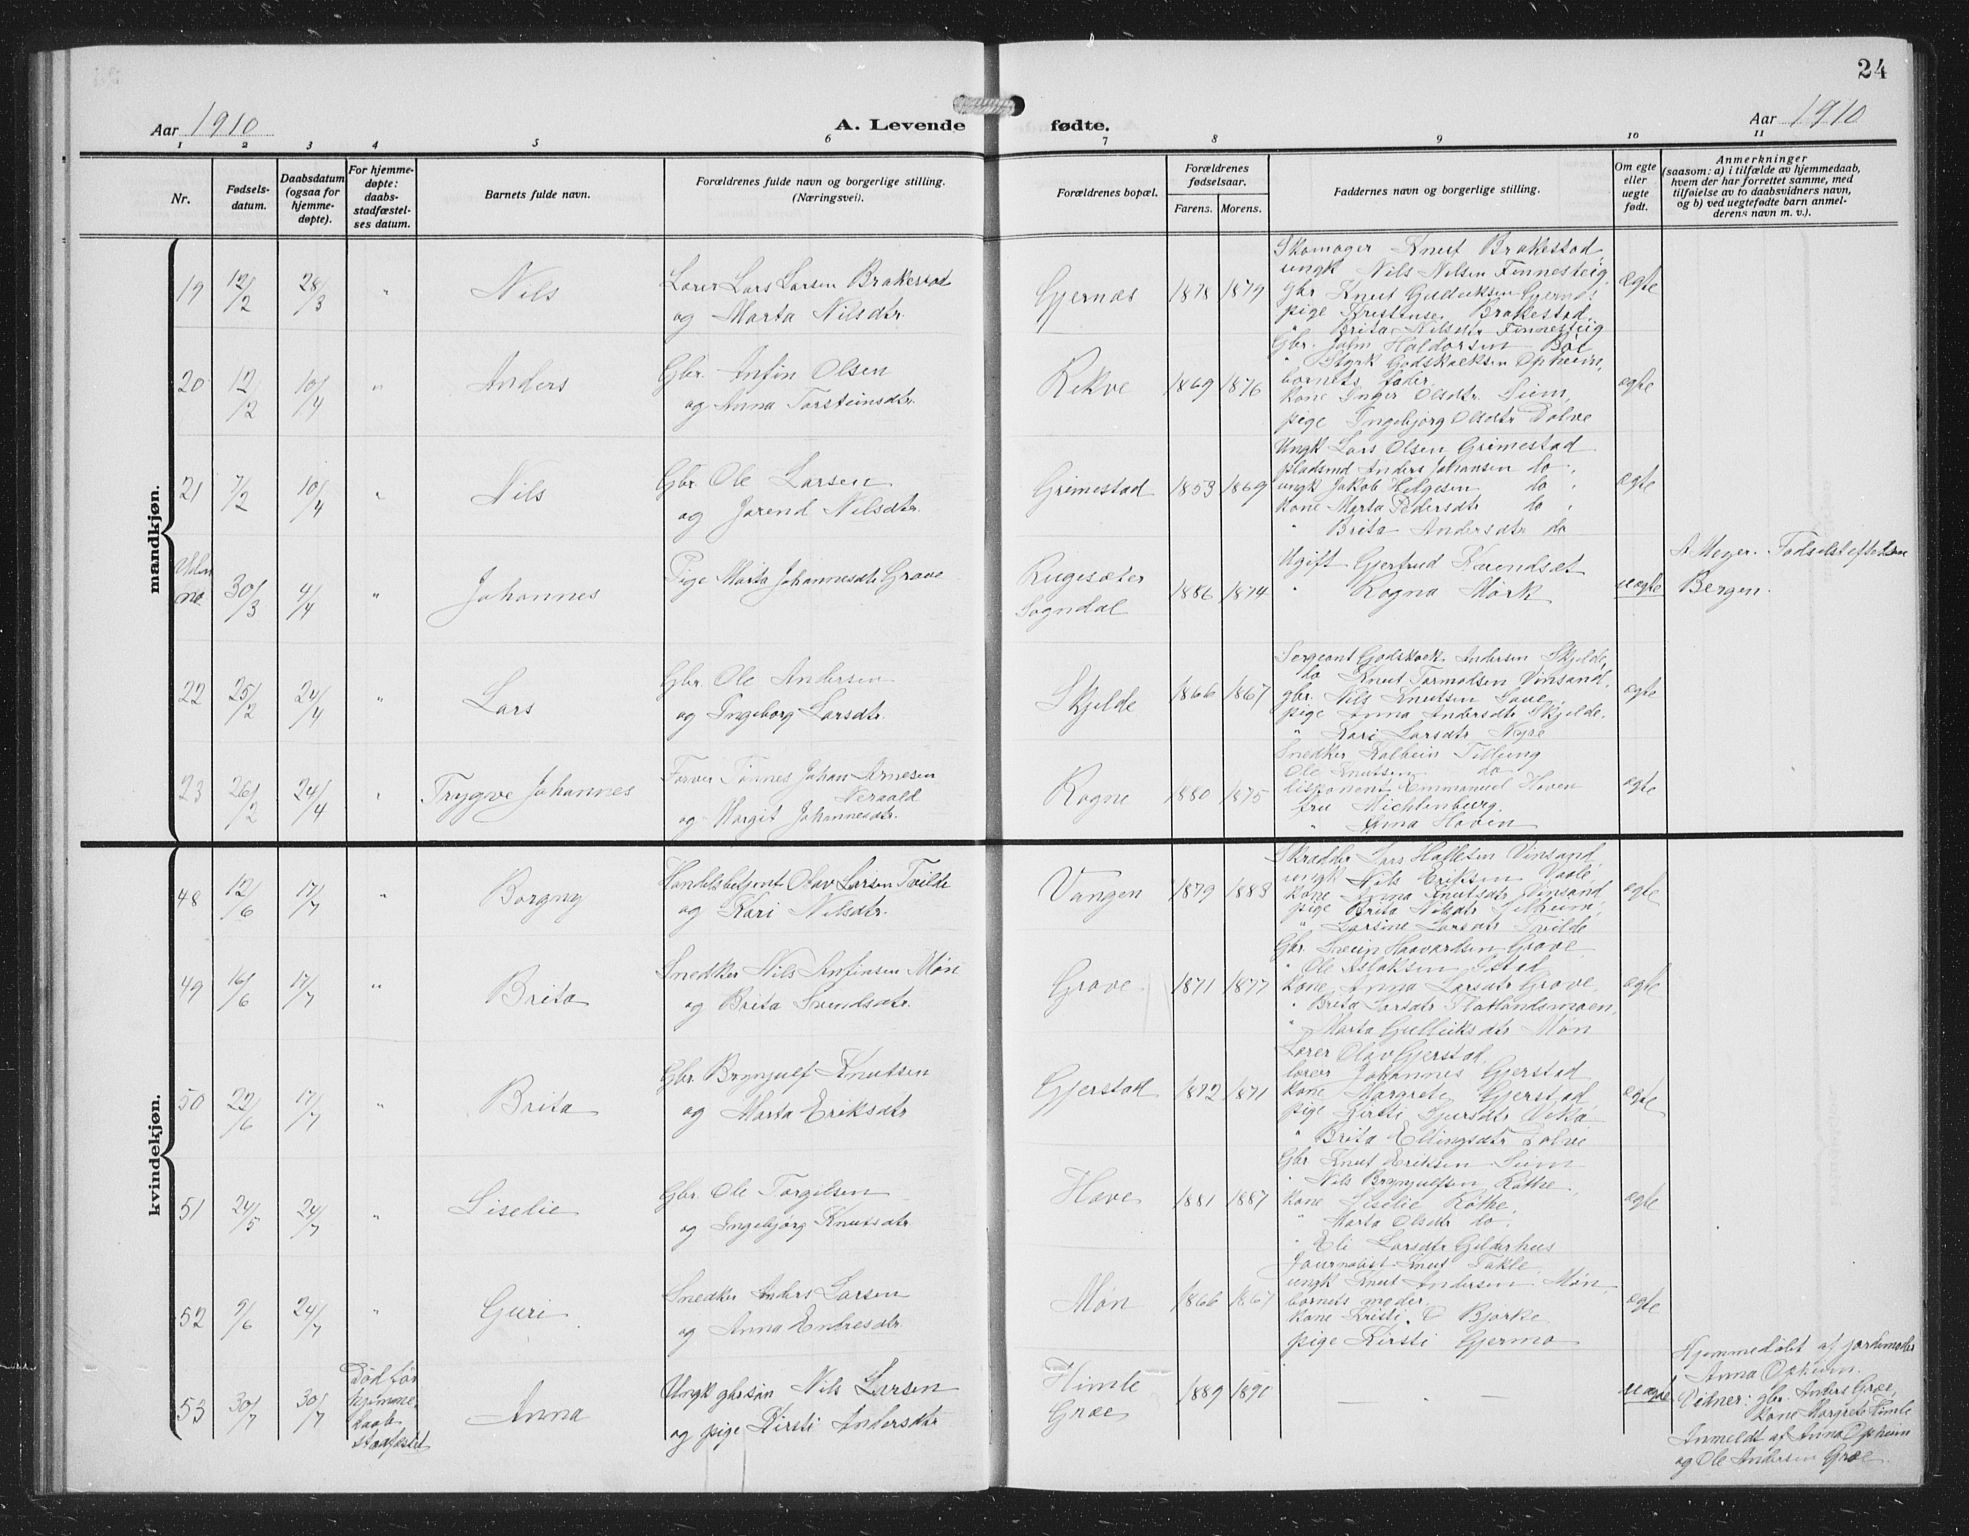 24
Aar 1910
A. Levende fødte.
Aar 1910
1 2 3 4 5 6 7 8 9 10 11
Nr.
Fødsels-
datum.
Daabsdatum
(ogsaa for
hjemme-
døpte).
For hjemme-
døpte:
daabs-
stadfæstel-
ses datum.
Barnets fulde navn.
Forældrenes fulde navn og borgerlige stilling.
(Næringsvei).
Forældrenes bopæl.
Forældrenes
fødselsaar.
Farens. Morens.
Faddernes navn og borgerlige stilling.
Om egte
eller
uegte
født.
Anmerkninger
(saasom: a) i tilfælde av hjemmedaab,
hvem der har forrettet samme, med
tilføielse av to daabsvidners navn,
og b) ved uegtefødte barn anmel-
derens navn m. v.).
mandkjøn.
19 12/2 28/3 " Nils
Lærer Lars Larsen Brakestad
og Marta Nilsdtr.
Gjernæs 1878 1879
Skomager Knut Brakestad
ungk Nils Nilsen Finnesteig
gbr Knut Gulleiksen Gjernæs
pige Kristense Brakestad
" Brita Nilsdtr Finnesteig
ægte
20 12/2 10/4 " Anders
Gbr. Anfin Olsen
og Anna Torsteinsdtr.
Rekve 1869 1876
Gbr. John Haldorsen Bøe
" Styrk Godskalksen Opheim,
barnets fader,
kone Inger Olsdtr. Siem,
pige Ingebjørg Olsdtr Dolve
ægte
21 7/2 10/4 " Nils
Gbr. Ole Larsen
og Jorend Nilsdtr.
Grimestad 1853 1869
Ungk Lars Olsen Grimestad
pladsmd Anders Johansen do.
ungk Jakob Helgesen do.
kone Marta Pedersdtr do.
" Brita Andersdtr do
ægte
Uten no 30/3 4/4 " Johannes
Pige Marta Johannesdtr Grove
Rugesæter
Sogndal
1886 1874
Ugift Gjertrud
" Ragna Mørk
uægte
A. Meyer. Fødselsstiftelsen
Bergen.
22 25/2 24/4 " Lars
Gbr. Ole Andersen
og Ingeborg Larsdtr.
Skjelde 1866 1867
Sergeant Godskalk Andersen Skjelde,
do Knut Tormodsen Vinsand,
gbr. Nils Knutsen Save,
pige Anna Andersdtr Skjelde.
" Kari Larsdtr Nyre
ægte
23 26/2 24/4 " Trygve Johannes
Farver Tønnes Johan Arnesen
Neraald
og Margit Johannesdtr.
Rogne 1880 1875
Snedker Kolbein Tillung
Ole Knutsen do
disponent Emmanuel Hoven
fru Michlenburg.
" Anna Hoven
ægte
kvindekjøn.
48 12/6 17/7 " Borgny
Handelsbetjent Olav Larsen Tvilde
og Kari Nilsdtr.
Vangen 1879 1883
Skrædder Lars Hallesen Vinsand,
ungk Nils Eriksen
kone Anna Knutsdtr Vinsand,
pige Brita Nilsdtr
" Larsine Larsdtr Tvilde
ægte
49 16/6 17/7 " Brita
Snedker Nils Anfinsen Møn
og Brita Svendsdtr.
Grove. 1871 1877
Gbr. Svein Haavardsen Grove
" Ole Aslaksen Istad
kone Anna Larsdtr Grove,
" Brita Larsdtr Flatlandsmoen,
" Marta Gulleiksdtr Møn
ægte
50 22/6 17/7 " Brita
Gbr. Brynjulf Knutsen
og Marta Eriksdtr
Gjerstad 1872 1871
Lærer Olav Gjerstad,
lærer Johannes Gjerstad
kone Margrete Gjerstad
pige Kirsti Sjursdtr Veka
" Brita Ellingsdtr Dolve
ægte
51 24/5 24/7 " Liselie
Gbr. Ole Torgilsen
og Ingebjørg Knutsdtr
Hæve 1881 1887
Gbr Knut Eriksen Siem
" Nils Brynjulfsen Røthe,
kone Liselie Røthe,
" Marta Olsdtr do
" Eli Larsdtr Gilderhus
ægte
52 9/6 24/7 " Guri
Snedker Anders Larsen
og Anna Endresdtr.
Møn 1866 1867
Journalist Knut Takle
ungk Knut Andersen Møn,
barnets moder.
kone Kristi O Bjorke
pige Kirsti Gjermo
ægte
53 30/7 30/7
Død før
hjemme
daab
stadfæstet
Anna
Ungk gbrsøn Nils Larsen
og pige Kirsti Andersdtr
Himle
Græe
1889 1890
— —
uægte
Hjemmedøbt af jordemoder
Anna Opheim.
Vidner: gbr. Anders Græe,
kone Margrete Himle
Anmeldt af Anna Opheim
og Ole Andersen Græe.